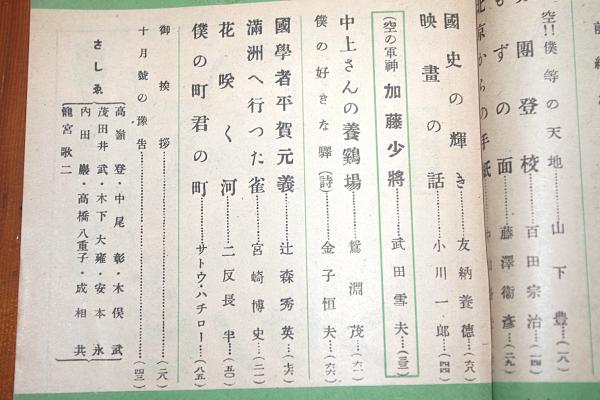 空!!僕等の天地……山下豊…(一八)
團登校……百田宗治…(一四)
もずの面……藤澤衞彥…(二九)
北京からの手紙
國史の輝き……友納養德…(六八)
映畫の話……小川一郎…(四四)
(空の軍神)加藤少將……武田雪夫…(三三)
中上さんの養鷄場……鴛淵茂…(六一)
僕の好きな驛(詩)……金子恒夫…(六六)
國學者平賀元義……辻森秀英…(七六)
滿洲へ行つた雀……宮崎博史…(二一)
花咲く河……二反長半…(五〇)
僕の町君の町……サトウ・ハチロー…(八五)
御挨拶……(二八)
十月號の豫告……(四三)
さしゑ
高嶺登・中尾彰・木俣武
茂田井武・木下大雍・安本永
內田巖・高橋八重子・成相共
籠宮歌二